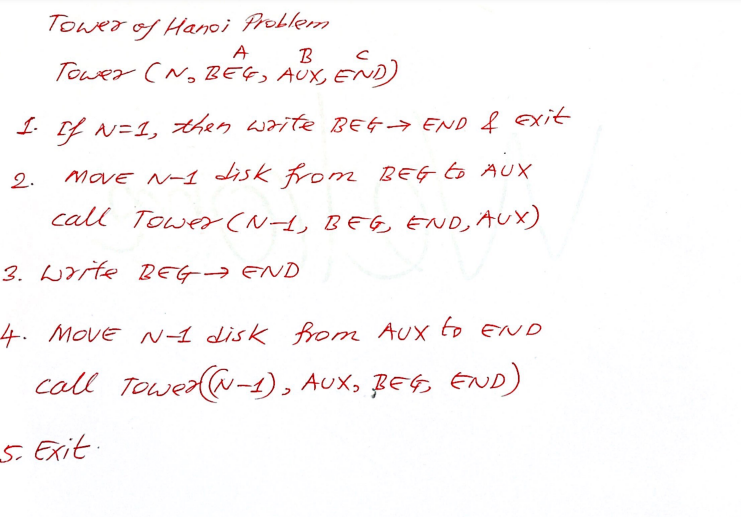 Tower of Hanoi Problem
A B C
Tower (N, BEG, AUX, END)
1. If N=1, then write BEG → END & exit
2. MOVE N-1 disk from BEG to AUX
call Tower (N-1, BEG, END, AUX)
3. Write BEG → END
4. MOVE N-1 disk from AUX to END
call Tower((N-1), AUX, BEG, END)
5. Exit.